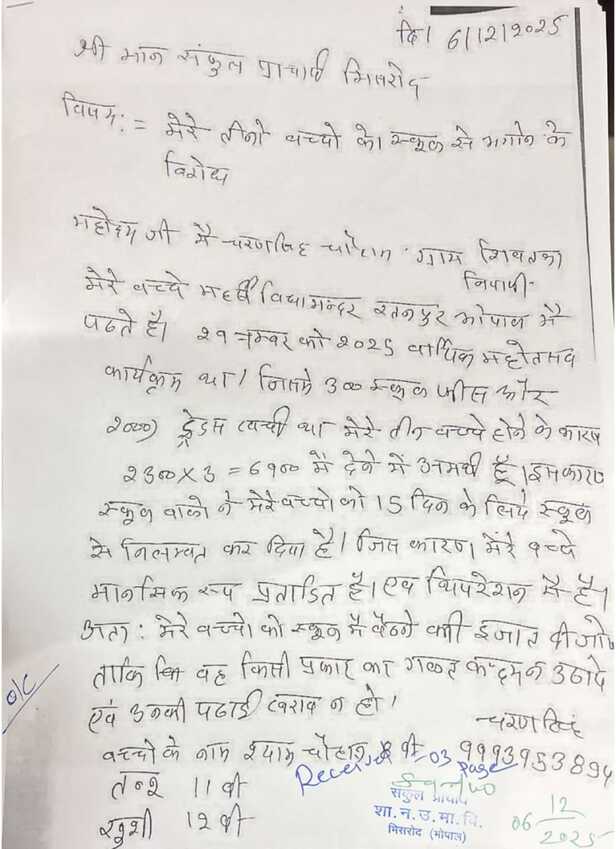 दि। 6/12/2025
श्री मान संकुल प्राचार्य मिसरोद
विषय:= मेरे तीनो बच्चो को स्कूल से भगाने के
विरोध
महोदय जी मै चरणसिंह चौहान ग्राम
निवासी
मेरे बच्चे महर्षी विद्यामन्दर रतनपुर भोपाल मै
पढते है। २९ नम्बर को २०२5 वार्षिक महोत्सव
कार्यक्रम था। जिसमे 3०० स्कूल फीस और
२०००) ड्रेस खर्चा था मेरे तीन बच्चे होने के कारण
२3००X3 = 6९०० मै देने में असमर्थ हूँ। इस कारण
स्कूल वालो ने मेरे बच्चो को 15 दिन के लिये स्कूल
से निलम्बत कर दिया है। जिस कारण मेरे बच्चे
मानसिक रूप प्रताडित है। एव डिपरेशन मै है।
अतः मेरे बच्चो को स्कूल मै बैठने की इजात दी जाये
ताकि कि वह किसी प्रकार का गलत कदम न उठाये
एवं उनकी पढाई खराब न हो।
चरण सिंह
बच्चो के नाम श्याम चौहान 8 वी 9993953894
O/C
Received 03 Page
11 वी
खुशी 12 वी
संकुल प्राचार्य
शा. न. उ. मा. वि.
मिसरोद (भोपाल)
06 12 2025